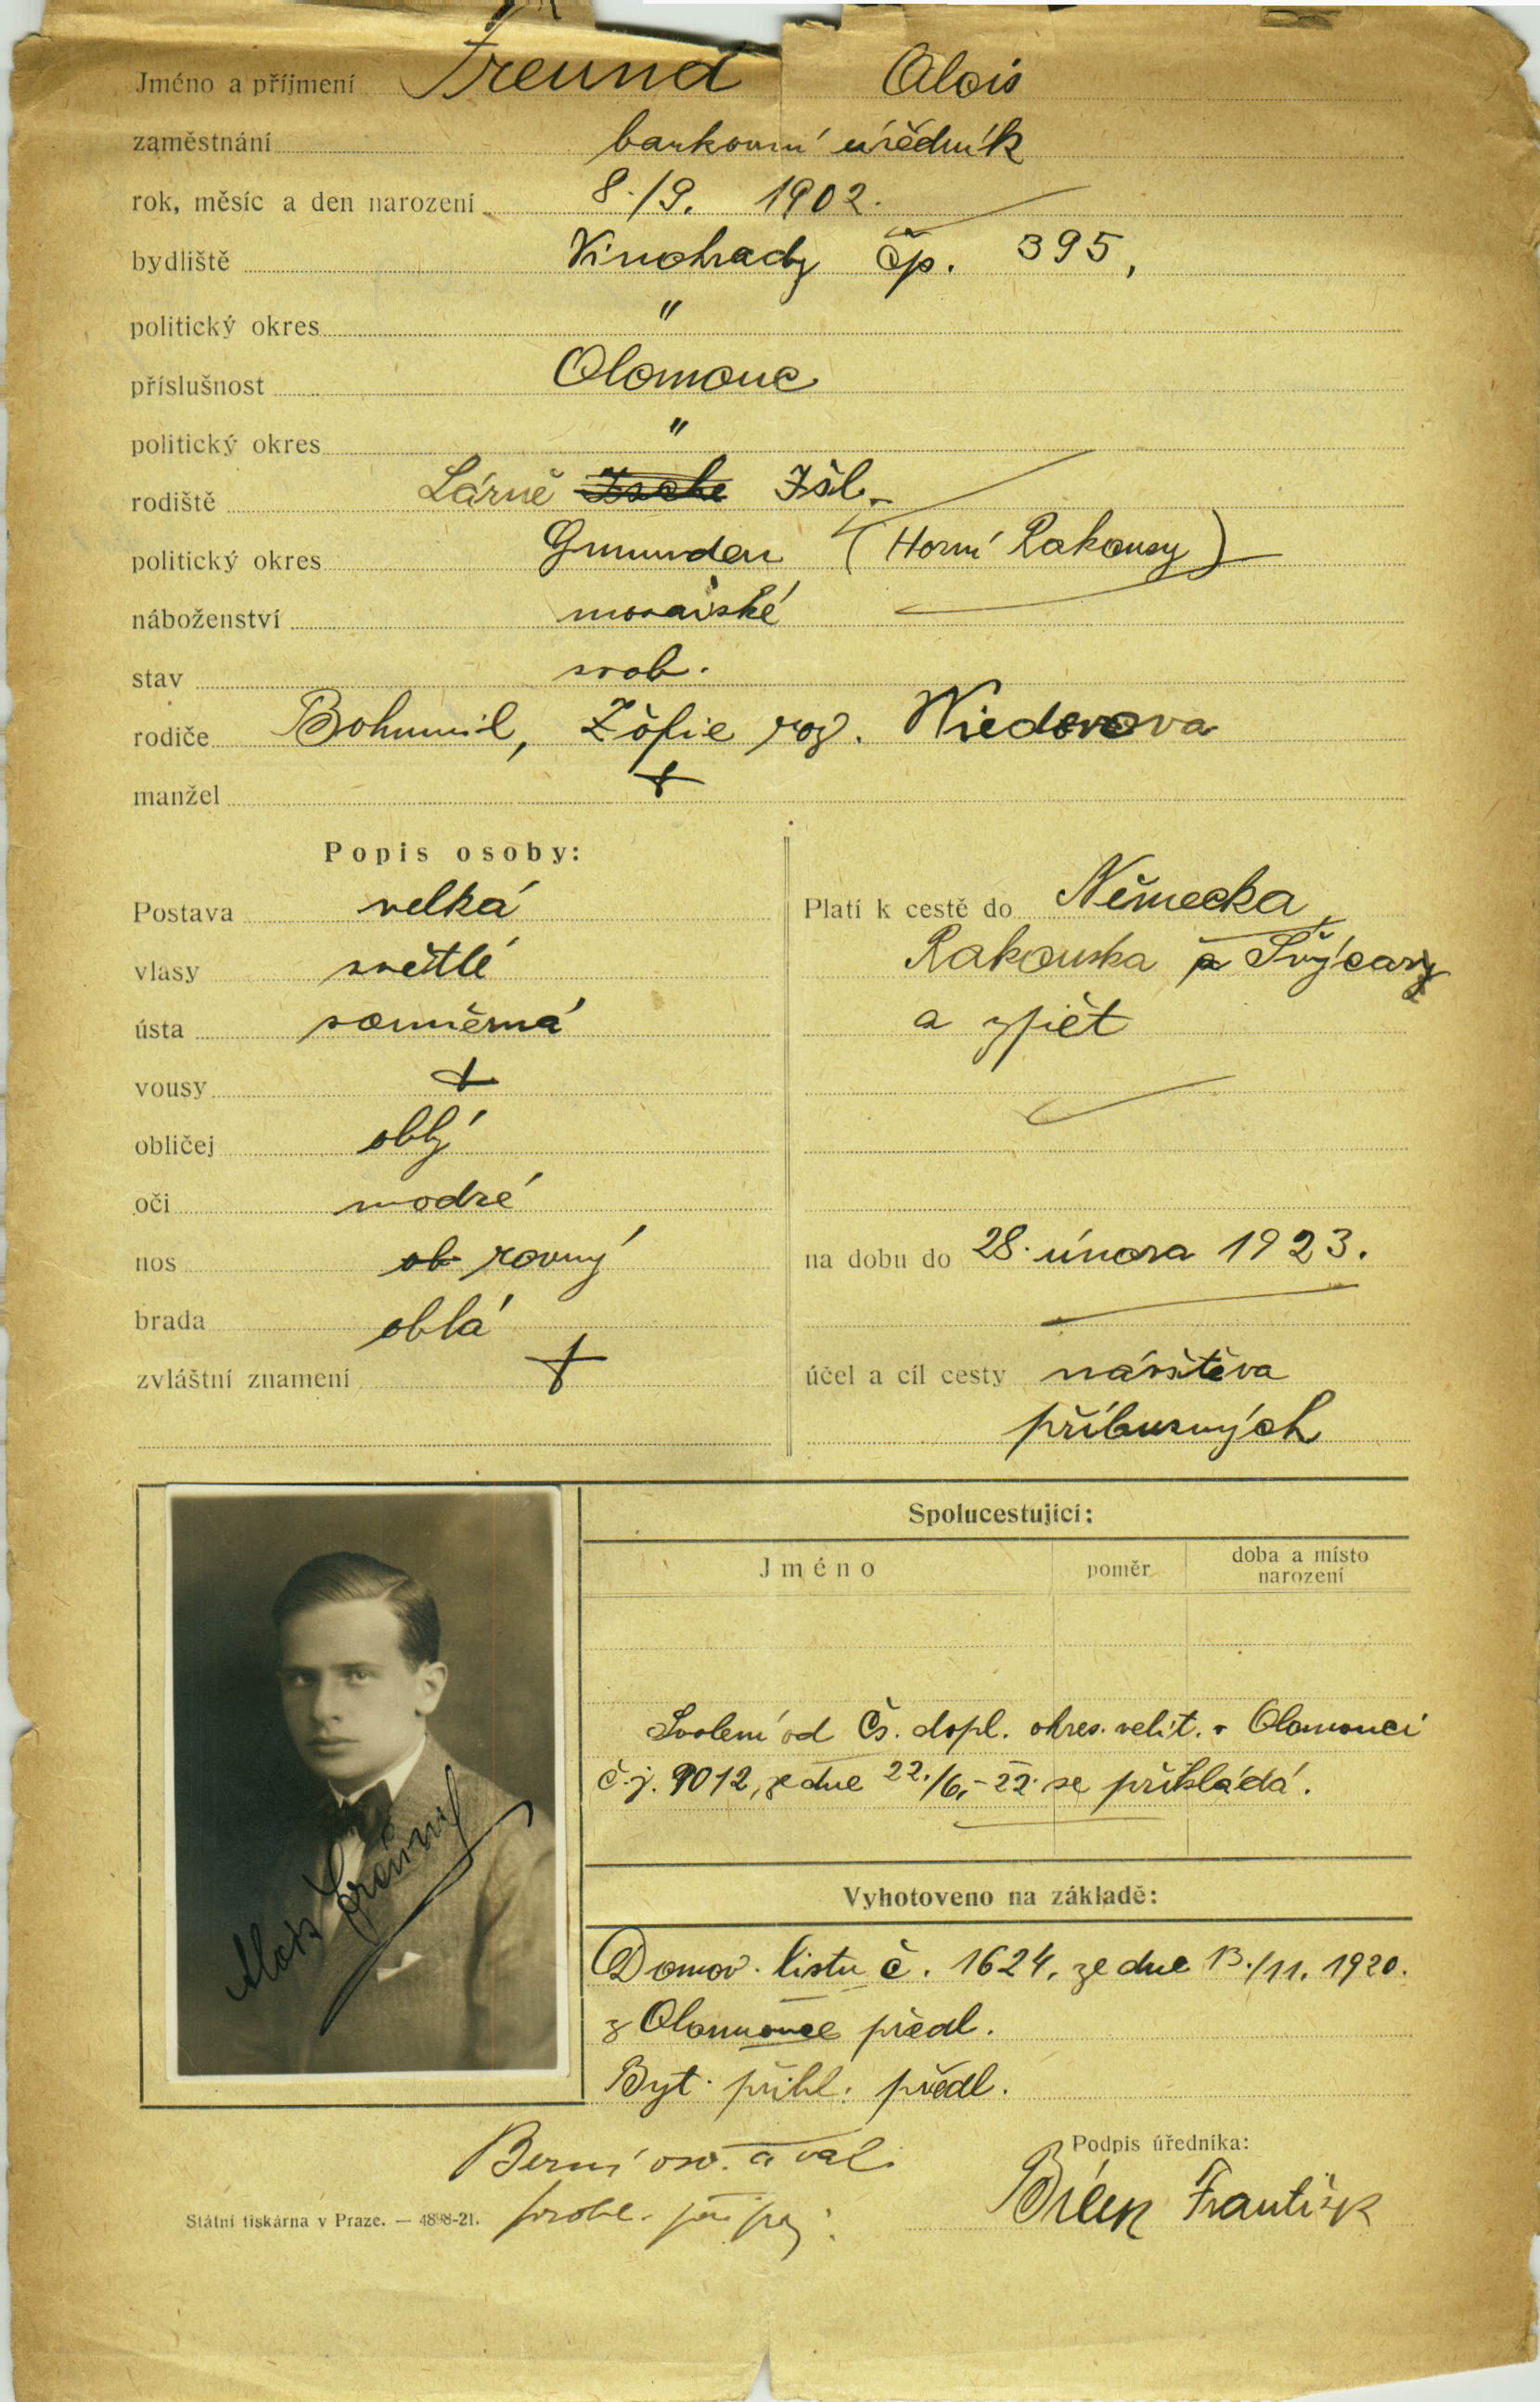 Jméno a příjmení Freund Alois
zaměstnání bankovní úředník
rok, měsíc a den narození 8./9. 1902.
bydliště Vinohrady čp. 395,
politický okres "
příslušnost Olomouc
politický okres "
rodiště Lázně Ische Išl.
politický okres Gmunden (Horní Rakousy)
náboženství mosaiské
stav svob.
rodiče Bohumil, Žofie roz. Wiederova
manžel
Popis osoby:
Postava velká
vlasy světlé
ústa souměrná
vousy
obličej oblý
oči modré
nos ob rovný
brada oblá
zvláštní znamení
Platí k cestě do Německa,
Rakouska a Švýcary
a zpět
na dobu do 28. února 1923.
účel a cíl cesty návštěva
příbuzných
Spolucestující:
Jméno poměr doba a místo narození
Svolení od Čs. dopl. okres. velit. v Olomouci
č.j. 9012, ze dne 22./6.-22. se přikládá.
Vyhotoveno na základě:
Domov. listu č. 1624, ze dne 13./11. 1920.
z Olomouce předl.
Byt. přihl. předl.
Alois Freund
Berní osv. a val.
Podpis úředníka:
Bílek František
Státní tiskárna v Praze. — 4898-21.